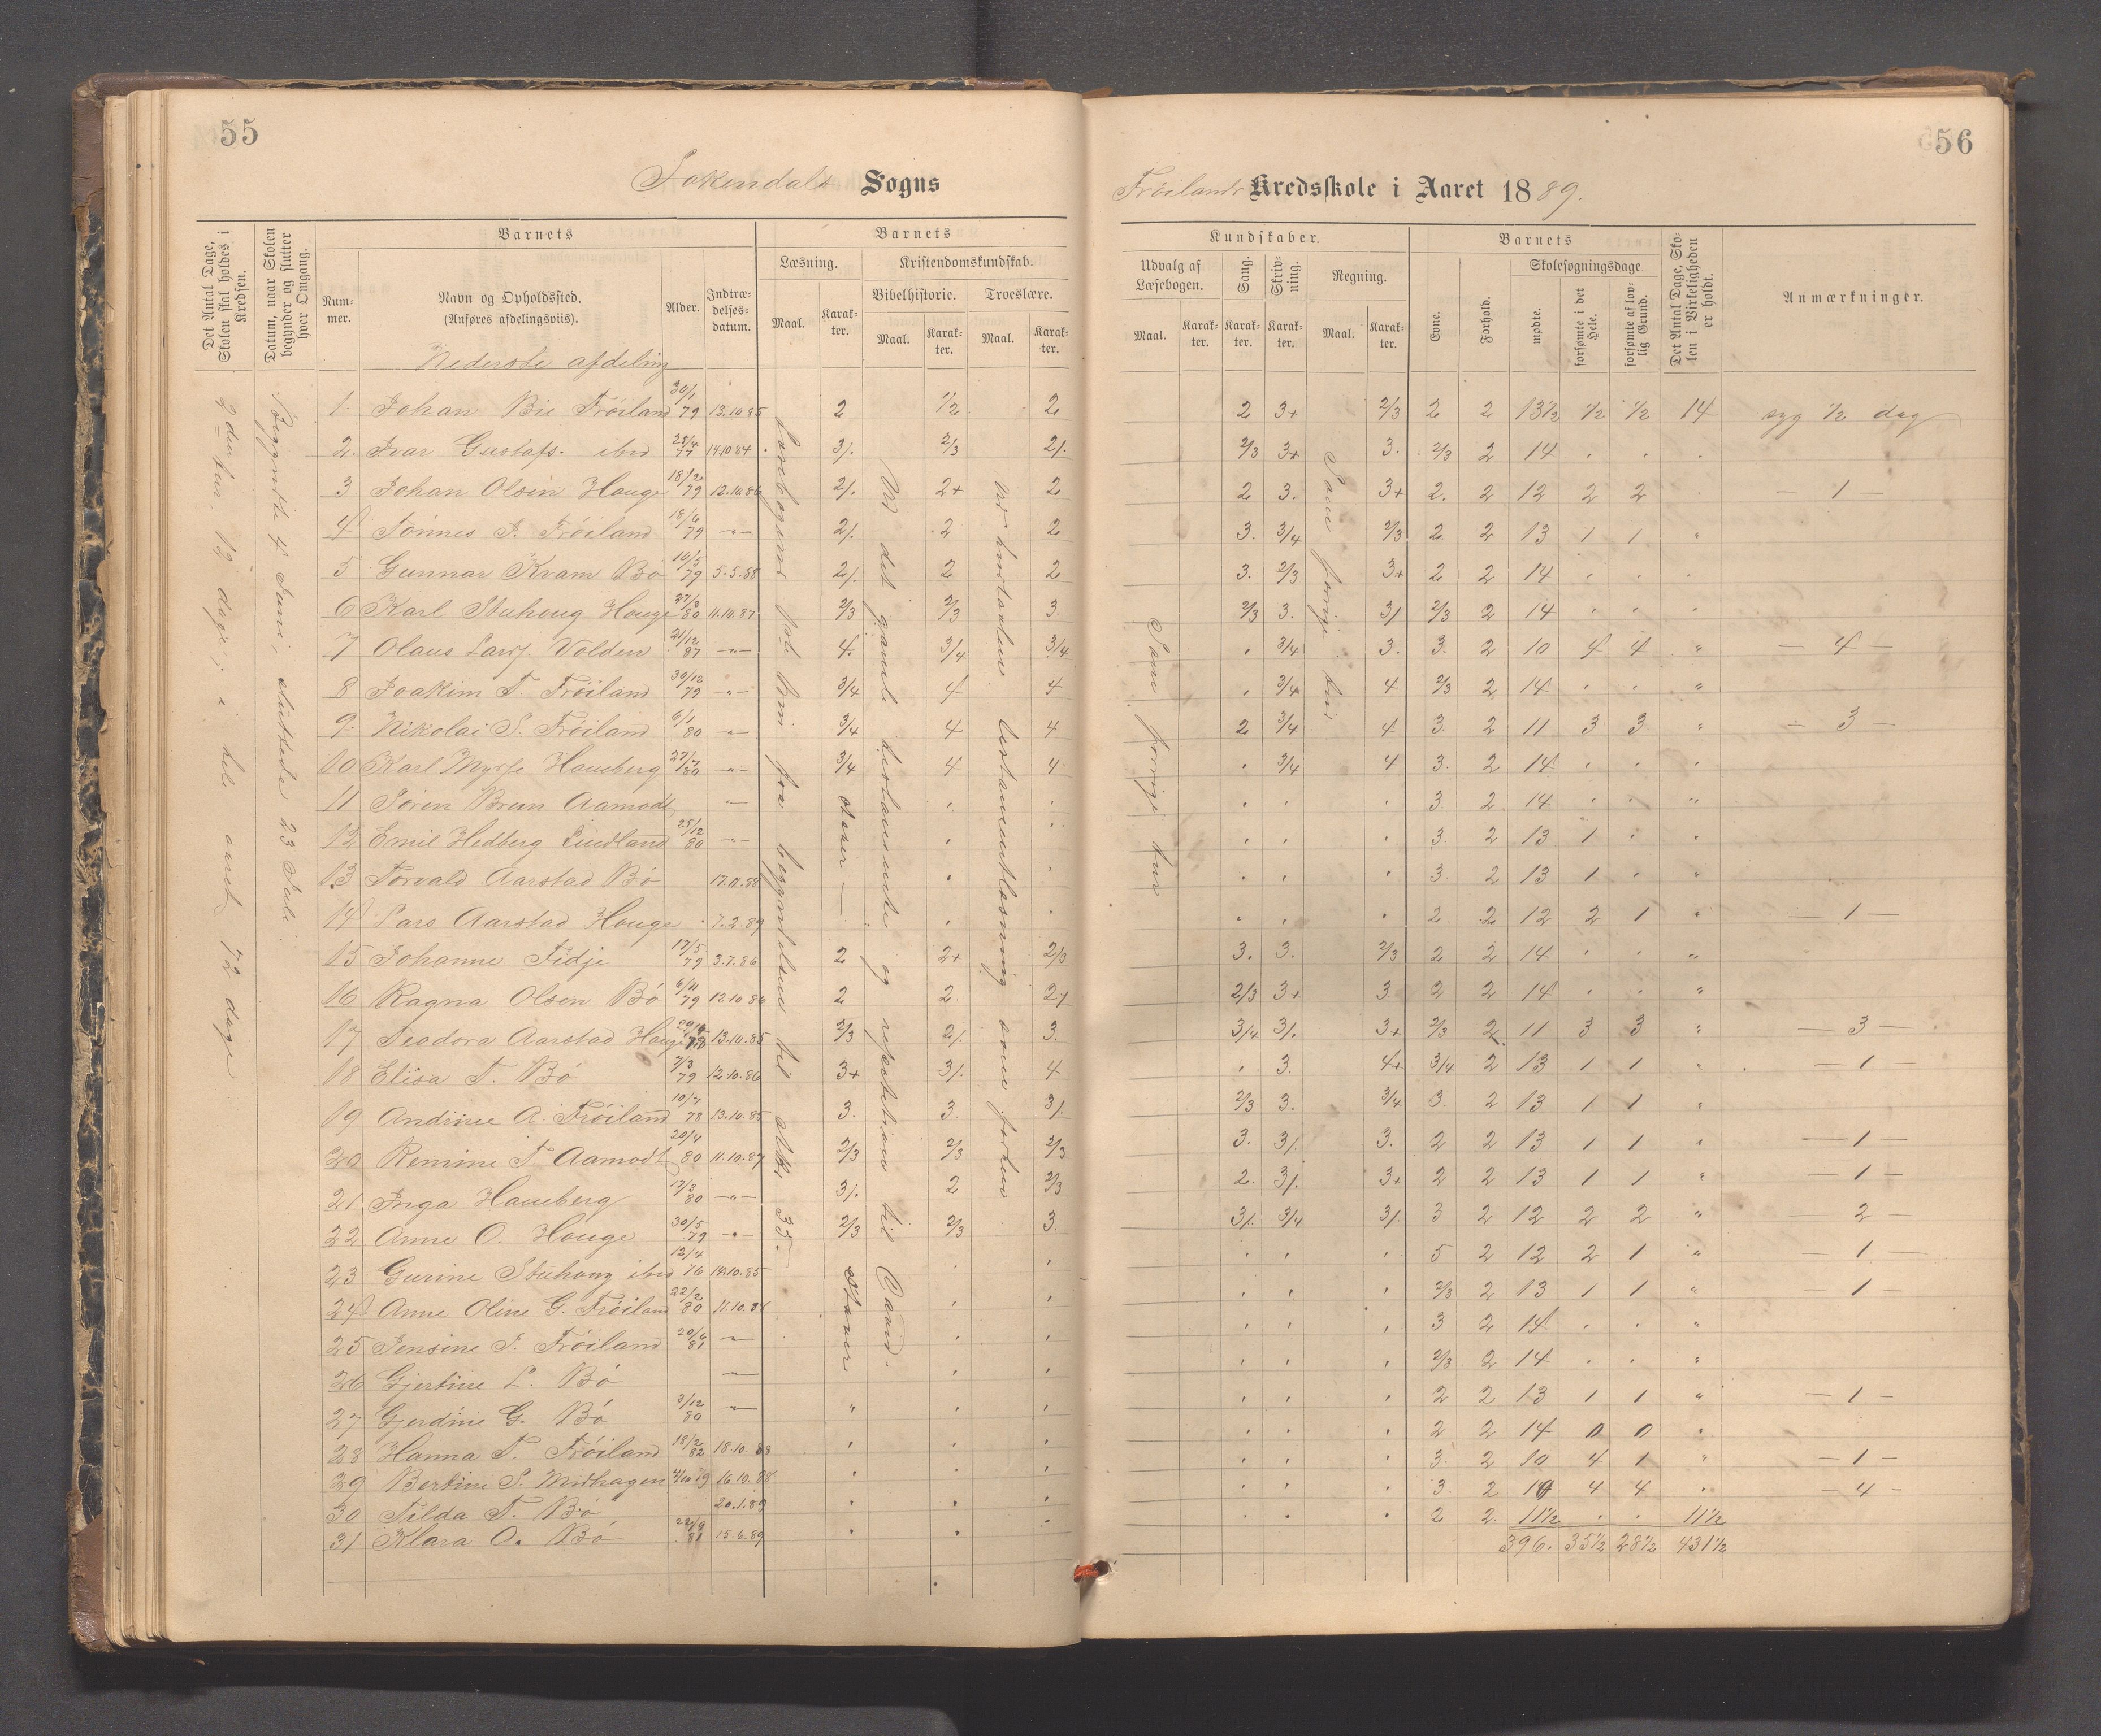 55
Sokendals Sogns
Det Antal Dage, Skolen skal holdes i Kredsen.
Datum, naar Skolen begynder og slutter hver Omgang.
Barnets
Nummer.
Navn og Opholdssted.
(Anføres afdelingsviis).
Alder.
Indtrædelsesdatum.
Barnets
Læsning.
Kristendomskundskab.
Bibelhistorie.
Troeslære.
Maal. Karakter. Maal. Karakter. Maal. Karakter.
Nederste afdeling
1. Johan Bie Fröiland 30/1 79 13.10 85 2 1/2 2
2. Ivar Gustafs. ibid 25/4 77 14.10 84 3/. 2/3 2/.
3 Johan Olsen Hauge 18/2 79 12.10.86 2/. 2+ 2
4 Tönnes J. Fröiland 18/6 79 -"- 2/. 2 2
5 Gunnar Kvam Bö 10/5 79 5.5.88 2/. 2 2
6 Karl Stuhoug Hauge 27/3 80 11.10.87 2/3 2/3 3.
7 Olaus Larsf. Volden 21/12 87 -"- 4. 3/4 3/4
8 Joakim T. Fröiland 30/12 79 -"- 3/4 4 4
9. Nikolai S. Fröiland 6/1 80 -"- 3/4 4 4
10 Karl Myrse Haneberg 27/7 80 -"- 3/4 4 4
11 Sören Brun Aamodt -"-
12 Emil Hedberg Lindland 25/12 80 -"-
13 Torvald Aarstad Bö 17.11.88
14 Lars Aarstad Hauge 7.2.89
15 Johanne Tidje 17/5 79 3.7.86 2 2+ 2/3
16 Ragna Olsen Bö 6/11 79 12.10 86 2 2. 2/.
17 Teodora Aarstad Hauge 78 13.10.85 2/3 2/. 3.
18 Elisa T. Bö 7/3 79 12.10.86 3+ 3/. 4
19 Andrine A. Fröiland 10/7 78 13.10.85 3. 3. 3/.
20 Remine T. Aamodt 20/4 80 11.10.87 2/3 2/3 2/3
21 Inga Haneberg 17/3 80 -"- 3/. 2 2/3
22 Anne O. Hauge 30/5 79 -"- 2/3 2/3 3.
23 Gurine Stuhoug ibid 12/4 76 14.10.85
24 Anne Oline G. Fröiland 22/2 80 11.10.87
25 Jensine J. Fröiland 20/6 81 -"-
26 Gjertine L. Bö -"-
27 Gjerdine G. Bö 3/12 80 -"- "
28 Hanna T. Fröiland 18/2 82 18.10.88
29 Bertine S. Midhagen 4/10 79 16.10.88
30 Tilda T. Bö 20.1.89
31 Klara O. Bö 22/9 81 15.6.89
2den tur, 12 dage; i hele aaret 72 dage
Begyndte 4 Juni, sluttede 23 Juli.
begyndelsen til stk. 35.
Ved det gamle testamente og repetition til David.
testamentlæsning som forhen
staver
56
Fröilands Kredsskole i Aaret 1889.
Kundskaber.
Udvalg af Læsebogen.
Sang.
Skrivning.
Regning.
Maal. Karakter. Karakter. Karakter. Maal. Karakter.
Barnets
Evne.
Forhold.
Skolesøgningsdage
mødte.
forsømte i det Hele.
forsømte af lovlig Grund.
Det Antal Dage, Skolen i Virkeligheden er holdt.
Anmærkninger.
Som forrige tur
Som forrige tur
2 3+ 2/3 2 2 13 1/2 1/2 1/2 14 syg 1/2 dag
2/3 3+ 3. 2/3 2 14
2 3. 3+ 2. 2 12 2 2 — 1 —
3. 3/4 2/3 2 2 13 1 1 "
3. 2/3 3+ 2 2 14
2/3 3. 3/ 2/3 2 14
3/4 3. 3. 2 10 4 4 " — 4 —
3/4 4 2/3 2 14 "
2 3/4 4 3 2 11 3 3 " — 3 —
3/4 4 3. 2 14
3. 2. 14 "
3 2 13 1
3. 2 13 1 "
2 2 12 2 1 " — 1 —
3. 3. 2/3 2 2 14 "
2/3 3+ 3 2 2 14 "
3/4 3/. 3+ 2/3 2 11 3 3 " — 3 —
3. 4+ 3/4 2 13 1 1 — 1 —
2/3 3. 3/4 3. 2 13 1 1 "
3. 3/. 3. 2 2 13 1 1 " — 1 —
2. 3/. 3+ 2 2 13 1 1 " — 1 —
3/. 3/4 3/. 3 2 12 2 2 " — 2 —
5 2 12 2 1 " — 1 —
2/3 2 13 1 1 " — 1 —
3 2 14 "
2/3 2 14 "
2 2 13 1 1 " — 1 —
2 2 14 0 0
3. 2 10 4 1 " — 1 —
3. 2 10 4 4 — 4 —
2 2. 11 1/2 11 1/2
396. 35 1/2 28 1/2 431 1/2